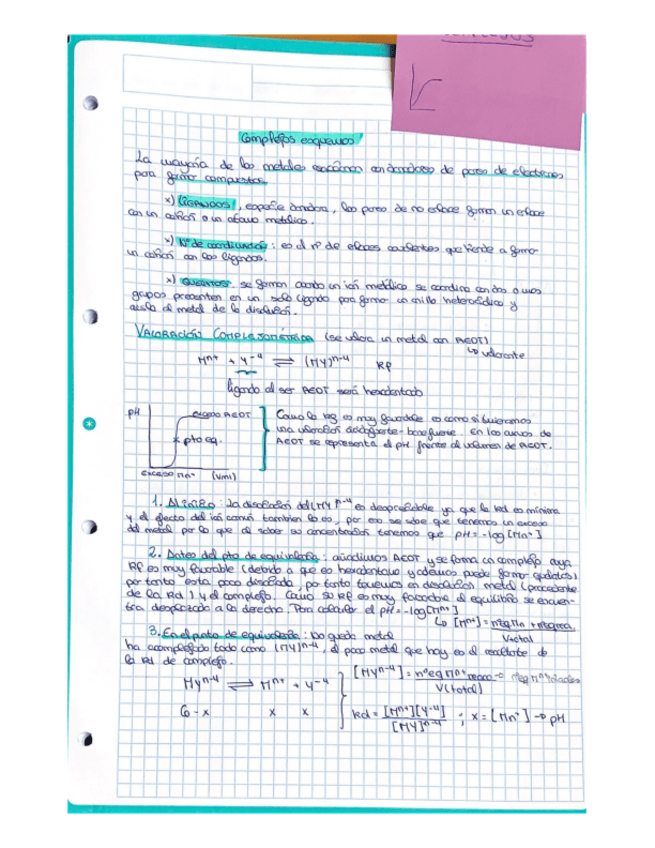 Complejos esquemas
La mayoría de los metales reaccionan con donadores de pares de electrones
para formar compuestos.
x) LIGANDOS, especie donadora, los pares de no enlace forman un enlace
con un catión o un átomo metálico.
x) Nº de coordinación: es el nº de enlaces covalentes que tiende a formar
un catión con los ligandos.
x) QUELATOS: se forman cuando un ión metálico se coordina con dos o más
grupos presentes en un solo ligando para formar un anillo heterocíclico y
al metal de la disolución.
VALORACIÓN COMPLEJOMÉTRICA (se valora un metal con AEDT)
↳ valorante
Mn+ + Y-4 ⇌ (MY)n-4 Kf
ligando al ser AEDT será hexadentado
pH
exceso AEDT
x pto eq.
exceso Mn+ (Vml)
Como la es muy favorable es como si tuvieramos
una valoración ácido fuerte-base fuerte. En las curvas de
AEDT se representa el pH frente al volumen de AEDT.
1. Al inicio: La disociación del (MY)n-4 es despreciable ya que la Kd es mínima
y el efecto del ión común también lo es, por eso se sabe que tenemos un exceso
del metal por lo que al saber su concentración tenemos que pH = -log [Mn+]
2. Antes del pto de equivalencia: añadimos AEDT y se forma un complejo cuya
Kf es muy favorable (debido a que es hexadentado y además puede formar quelatos)
por tanto esta poco disociado, por tanto tenemos en disolución metal (procedente
de la Kd) y el complejo. Como su Kf es muy favorable el equilibrio se encuen-
tra desplazado a la derecha. Para calcular el pH = -log [Mn+]
↳ [Mn+] =
V total
3. En el punto de equivalencia: No queda metal
ha acomplejado todo como (MY)n-4, el poco metal que hay es el resultante de
la Kd de complejo.
[MYn-4] = nºeq Mn+ reacc → nºeq Mn+ iniciales
V(total)
MYn-4 ⇌ Mn+ + Y-4
Co - x x x
Kd = [Mn+][Y-4] / [MY]n-4 ; x = [Mn+] → pH